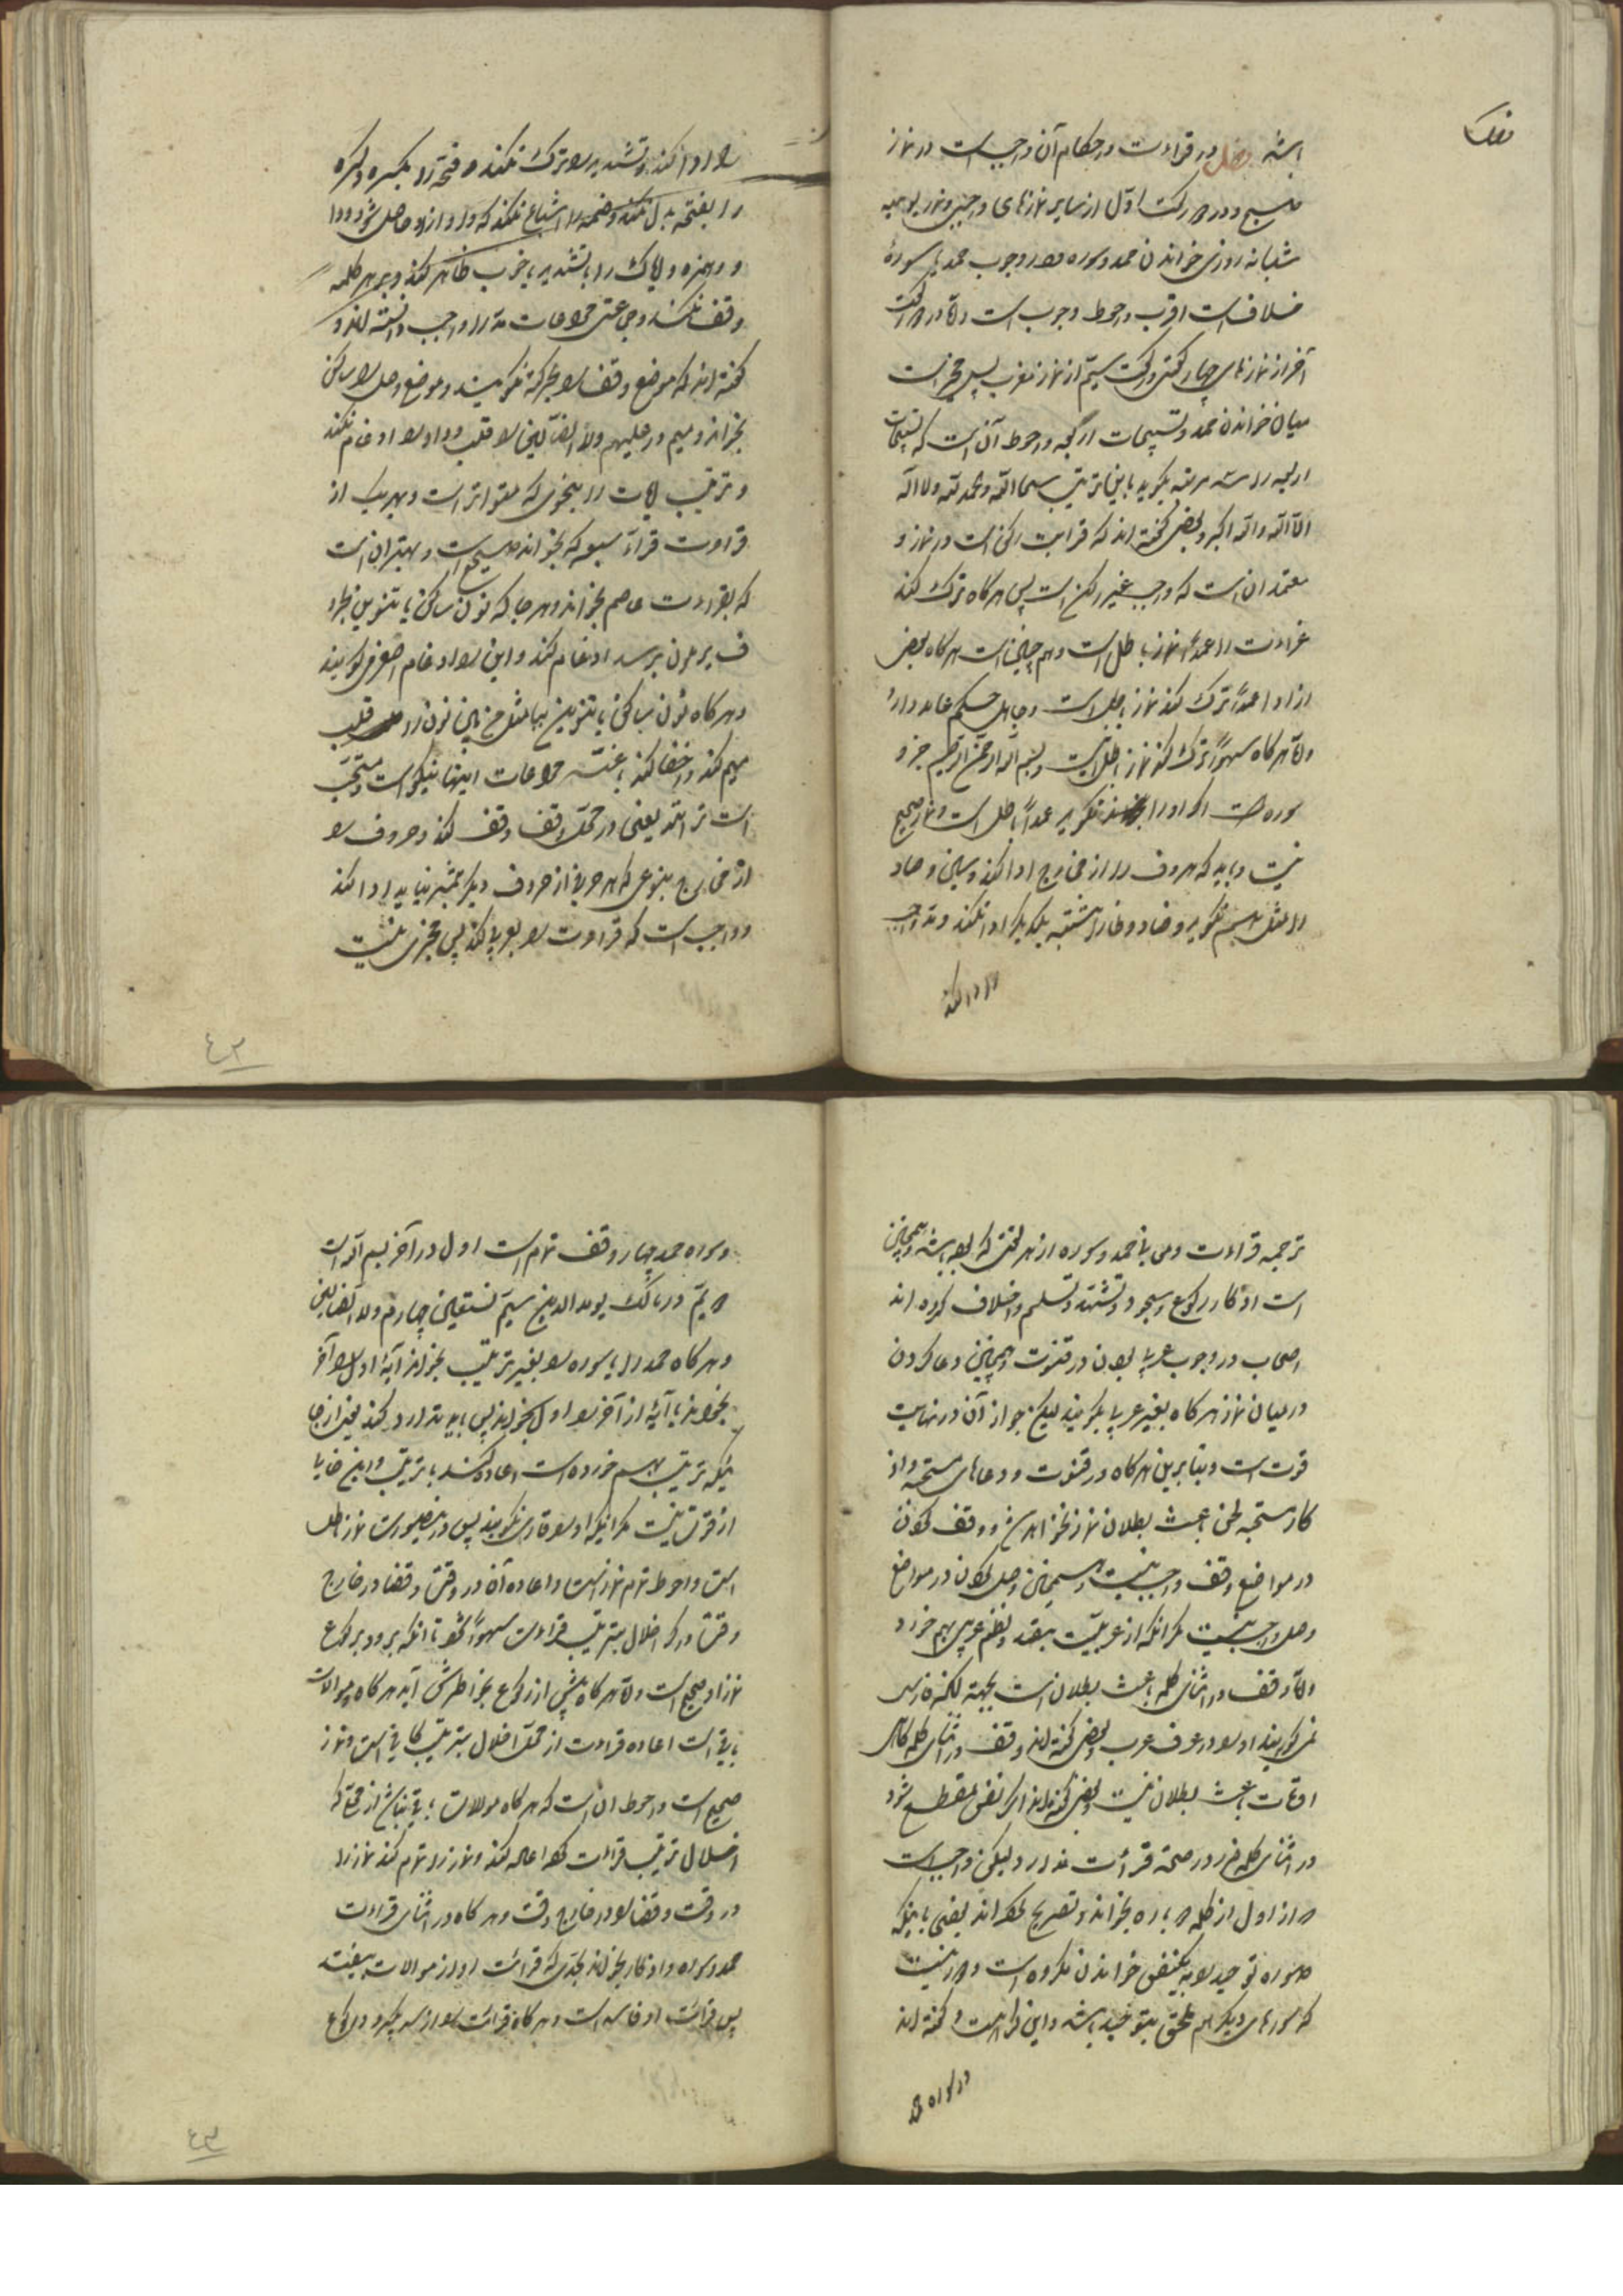 باشد فصل در قراءت و احکام آن واجب است در نماز
صبح و در دو رکعت اول از سایر نمازهای واجبی و نمازیومیه
شبانه روزی خواندن حمد و سوره و در وجوب حمد با سورهٔ
خلافست اقرب و احوط وجوب است و اما در دو رکعت
آخر از نمازهای چهار رکعتی و رکعت سیم از نماز مغرب پس مخیر است
میان خواندن حمد و تسبیحات اربعه و احوط آن است که تسبیحات
اربعه را سه مرتبه بگوید باین ترتیب سبحان الله والحمد لله ولا اله
الا الله والله اکبر و بعضی گفته اند که قراءت رکن است در نماز و
معتمد آنست که واجب غیر رکن است پس هرگاه ترک کند
قراءت را عمداً نماز باطل است و هم چنین است هرگاه بعضی
از او را عمداً ترک کند نماز باطل است و جاهل حکم عامد دارد
و اما هرگاه سهواً ترک کند نماز باطل نیست و بسم الله الرحمن الرحیم جزو
سوره است اگر او را نگوید عمداً باطل است و نماز صحیح
نیست و باید که حروف را از مخارج ادا کند و سین و صاد
را مثل هم نگوید و ضاد و ظا را مشتبه بیکدیگر ادا نکند و مد واجب
را ادا کند
را ادا کند و تشدید را ترک نکند و فتحه را بکسره و کسره
را بفتحه بدل نکند و ضمه را اشباع نکند که واو از او حاصل شود و دا
و و همزه و ایاک را با تشدید یا خوب ظاهر کند و بر هر کلمه
وقف نکند و جماعتی مراعات مد را واجب دانسته اند و
گفته اند که موضع وقف را بحرکة نگویند و موضع وصل را ساکن
نخوانند و میم در علیهم ولا الضالین را قلب بواو و ادغام نکند
و ترتیب آیات را بنحوی که متواتر است و بهر یک از
قراءت قراء سبعه که بخواند صحیح است و بهتر آن است
که بقراءت عاصم بخواند و هر جا که نون ساکن یا تنوین بحرو
ف یرملون برسد ادغام کند و این را ادغام صغری گویند
و هرگاه نون ساکن یا تنوین بباء مثل من بین نون را قلب
میم کند و اخفا کند با غنه مراعات اینها نیکو است و مستحب
است ترتیل یعنی در محل وقف وقف کند و حروف را
از مخارج بنوعی که هر حرفی از حروف دیگر متمیز نماید ادا کند
و واجب است که قراءت را بعربی کند پس مجزی نیست
ترجمه قراءت و معنی حمد و سوره از هر لغتی که بوده باشد و همچنین
است اذکار رکوع و سجود و تشهد و تسلیم و اختلاف کرده اند
اصحاب در وجوب عربی بودن در قنوت و همچنین دعا کردن
در میان نماز هرگاه بغیر عربی بگویند لیکن جواز آن در نهایت
قوت است و بنابراین هرگاه در قنوت و دعاهای مستحبه و اذ
کار مستحبه لحن باعث بطلان نماز نخواهد شد و وقف کردن
در مواضع وقف واجب نیست و همچنین وصل کردن در مواضع
وصل واجب نیست مگر آنکه از عربیت بیفتد و نظم عربی بهم خورد
و اما وقف در اثنای کلمه باعث بطلان است بجهة آنکه قاری
نمی گویند او را در عرف عرب و بعضی گفته اند وقف در اثنای کلمه گاهی
اوقات باعث بطلان نیست و بعضی گفته اند اگر نفس منقطع شود
در اثنای کلمه ضرر در صحة قرائت ندارد و لیکن واجب است
که از اول از کلمه دو باره بخواند و تصریح کرده اند بعضی باینکه
سوره توحید را بیک نفس خواندن مکروه است و دور نیست
که سورهای دیگر هم ملحق بتوحید باشد و این کراهت و گفته اند
در سوره حمد
و سوره حمد چهار وقف تمام است اول در آخر بسم الله است
دویم در مالک یوم الدین سیم نستعین چهارم ولا الضالین
و هرگاه حمد را یا سوره را بغیر ترتیب بخواند آیهٔ اول را آخر
بخواند یا آیهٔ از آخر را اول بخواند پس باید تدارک کند یعنی از جا
ئیکه ترتیب بهم خورده است اعاده کند با ترتیب و این منافا
از قرآن نیست مگر اینکه او را قاری نگویند پس در اینصورت نماز باطل
است و احوط تمام نماز است و اعاده آن در وقت و قضا در خارج
وقت و اگر اخلال بترتیب قراءت سهواً کند تا آنکه برود برکوع
نماز او صحیح است و اما هرگاه پیش از رکوع بخاطرش آید هرگاه موالات
باقی است اعاده قراءت از محل اخلال بترتیب کافی است و نماز
صحیح است و احوط آنست که هرگاه موالات باقی نباشد از محلی که
اخلال ترتیب قراءت کرده اعاده کند و نماز را تمام کند نماز را
در وقت و قضا او در خارج وقت و هرگاه در اثنای قراءت
حمد و سوره و اذکار بخواند بحدی که قرائت او از موالات بیفتد
پس قرائت او فاسد است و هرگاه قرائت را از سر بگیرد و رکوع